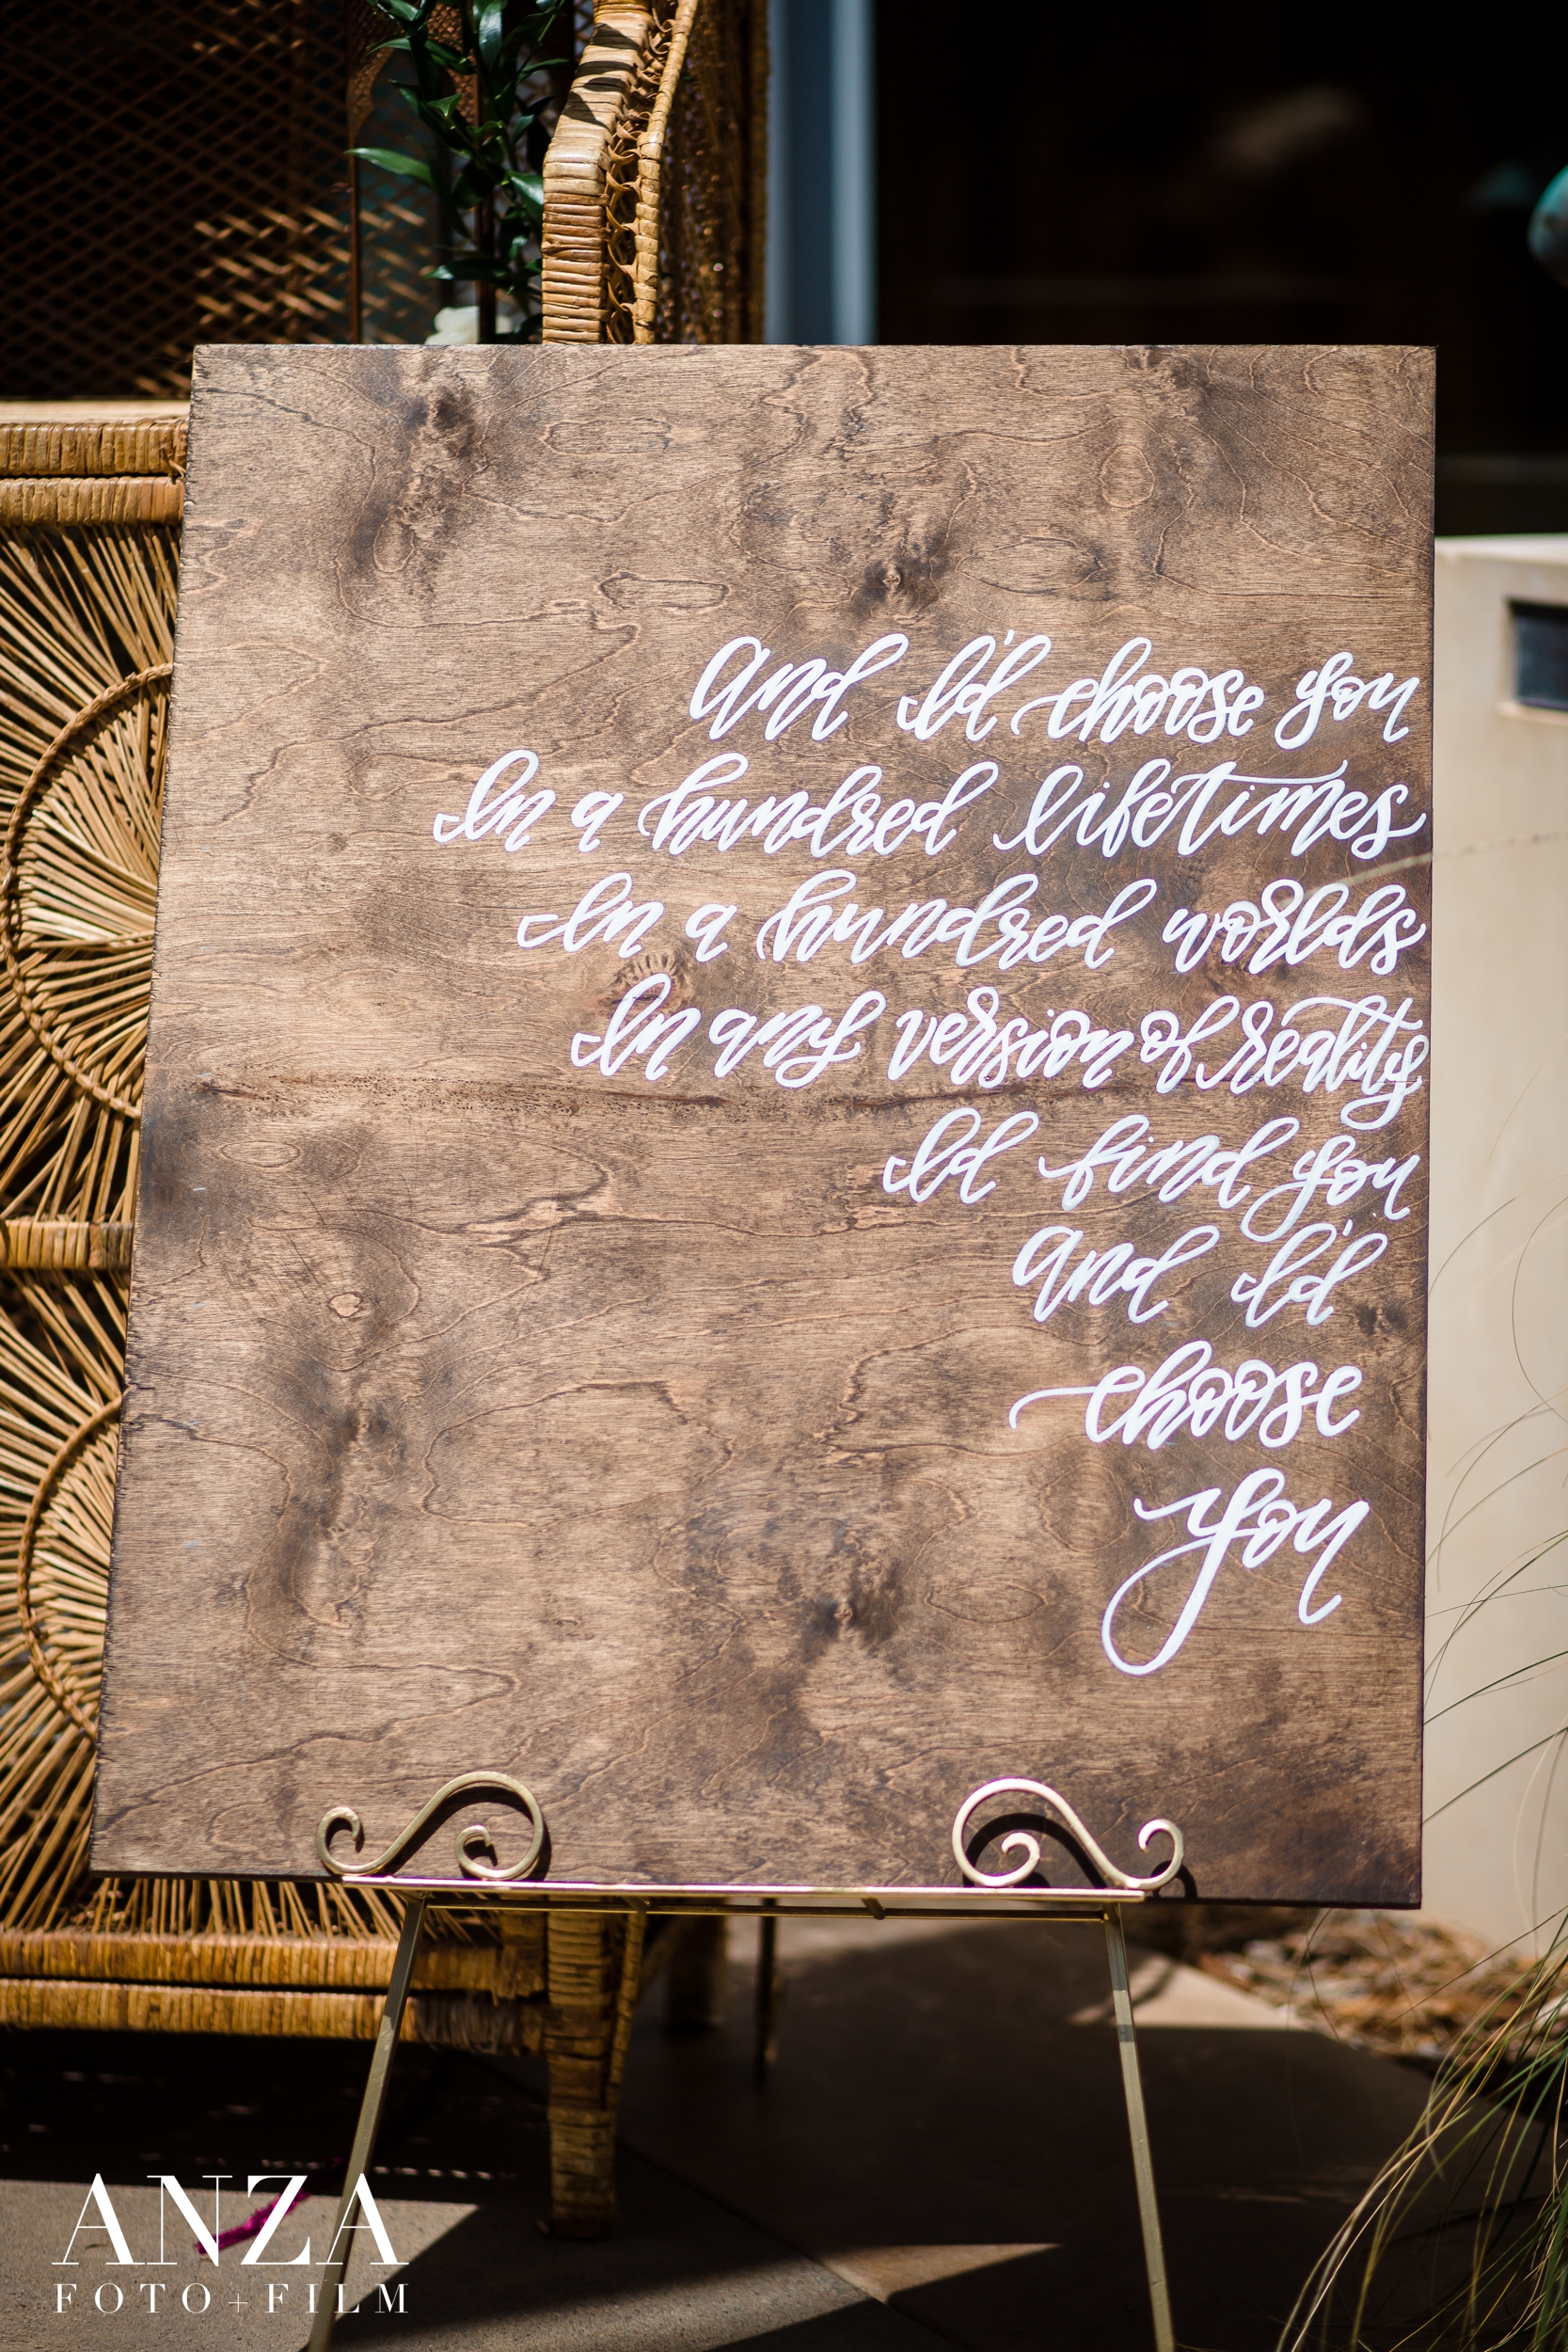 And I'd choose you
In a hundred lifetimes
In a hundred worlds
In any version of reality
Id find you
and I'd
choose
you
ANZA
FOTO+FILM